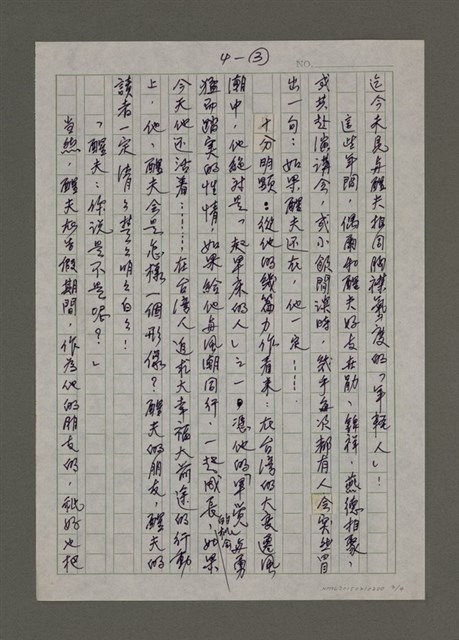 4—③
NO.
迄今未民与醒夫相同胸襟気度的「年輕人」！
這些年間，偶爾和醒夫好友在勛、錦祥、燕德相聚，
或共赴演講會，或小飲閒談時，幾乎每次都有人会突然冒
出一句：如果醒夫还在，他一定……
十分明顯：從他的幾篇力作看来：在台湾的大变遷風
潮中，他絕对是「起早床的人」之一。憑他的「單獨与勇
猛而踏实的性情，如果給他与風潮同行，一起成長的机会，如果
今天他还活着……在台湾人追求大幸福大前途的行動
上，他、醒夫会是怎樣一個形像？醒夫的朋友，醒夫的
讀者一定清清楚楚明明白白！
「醒夫：你說是不是呢？」
当然，醒夫短暫假期間，作為他的朋友的，秖好也把